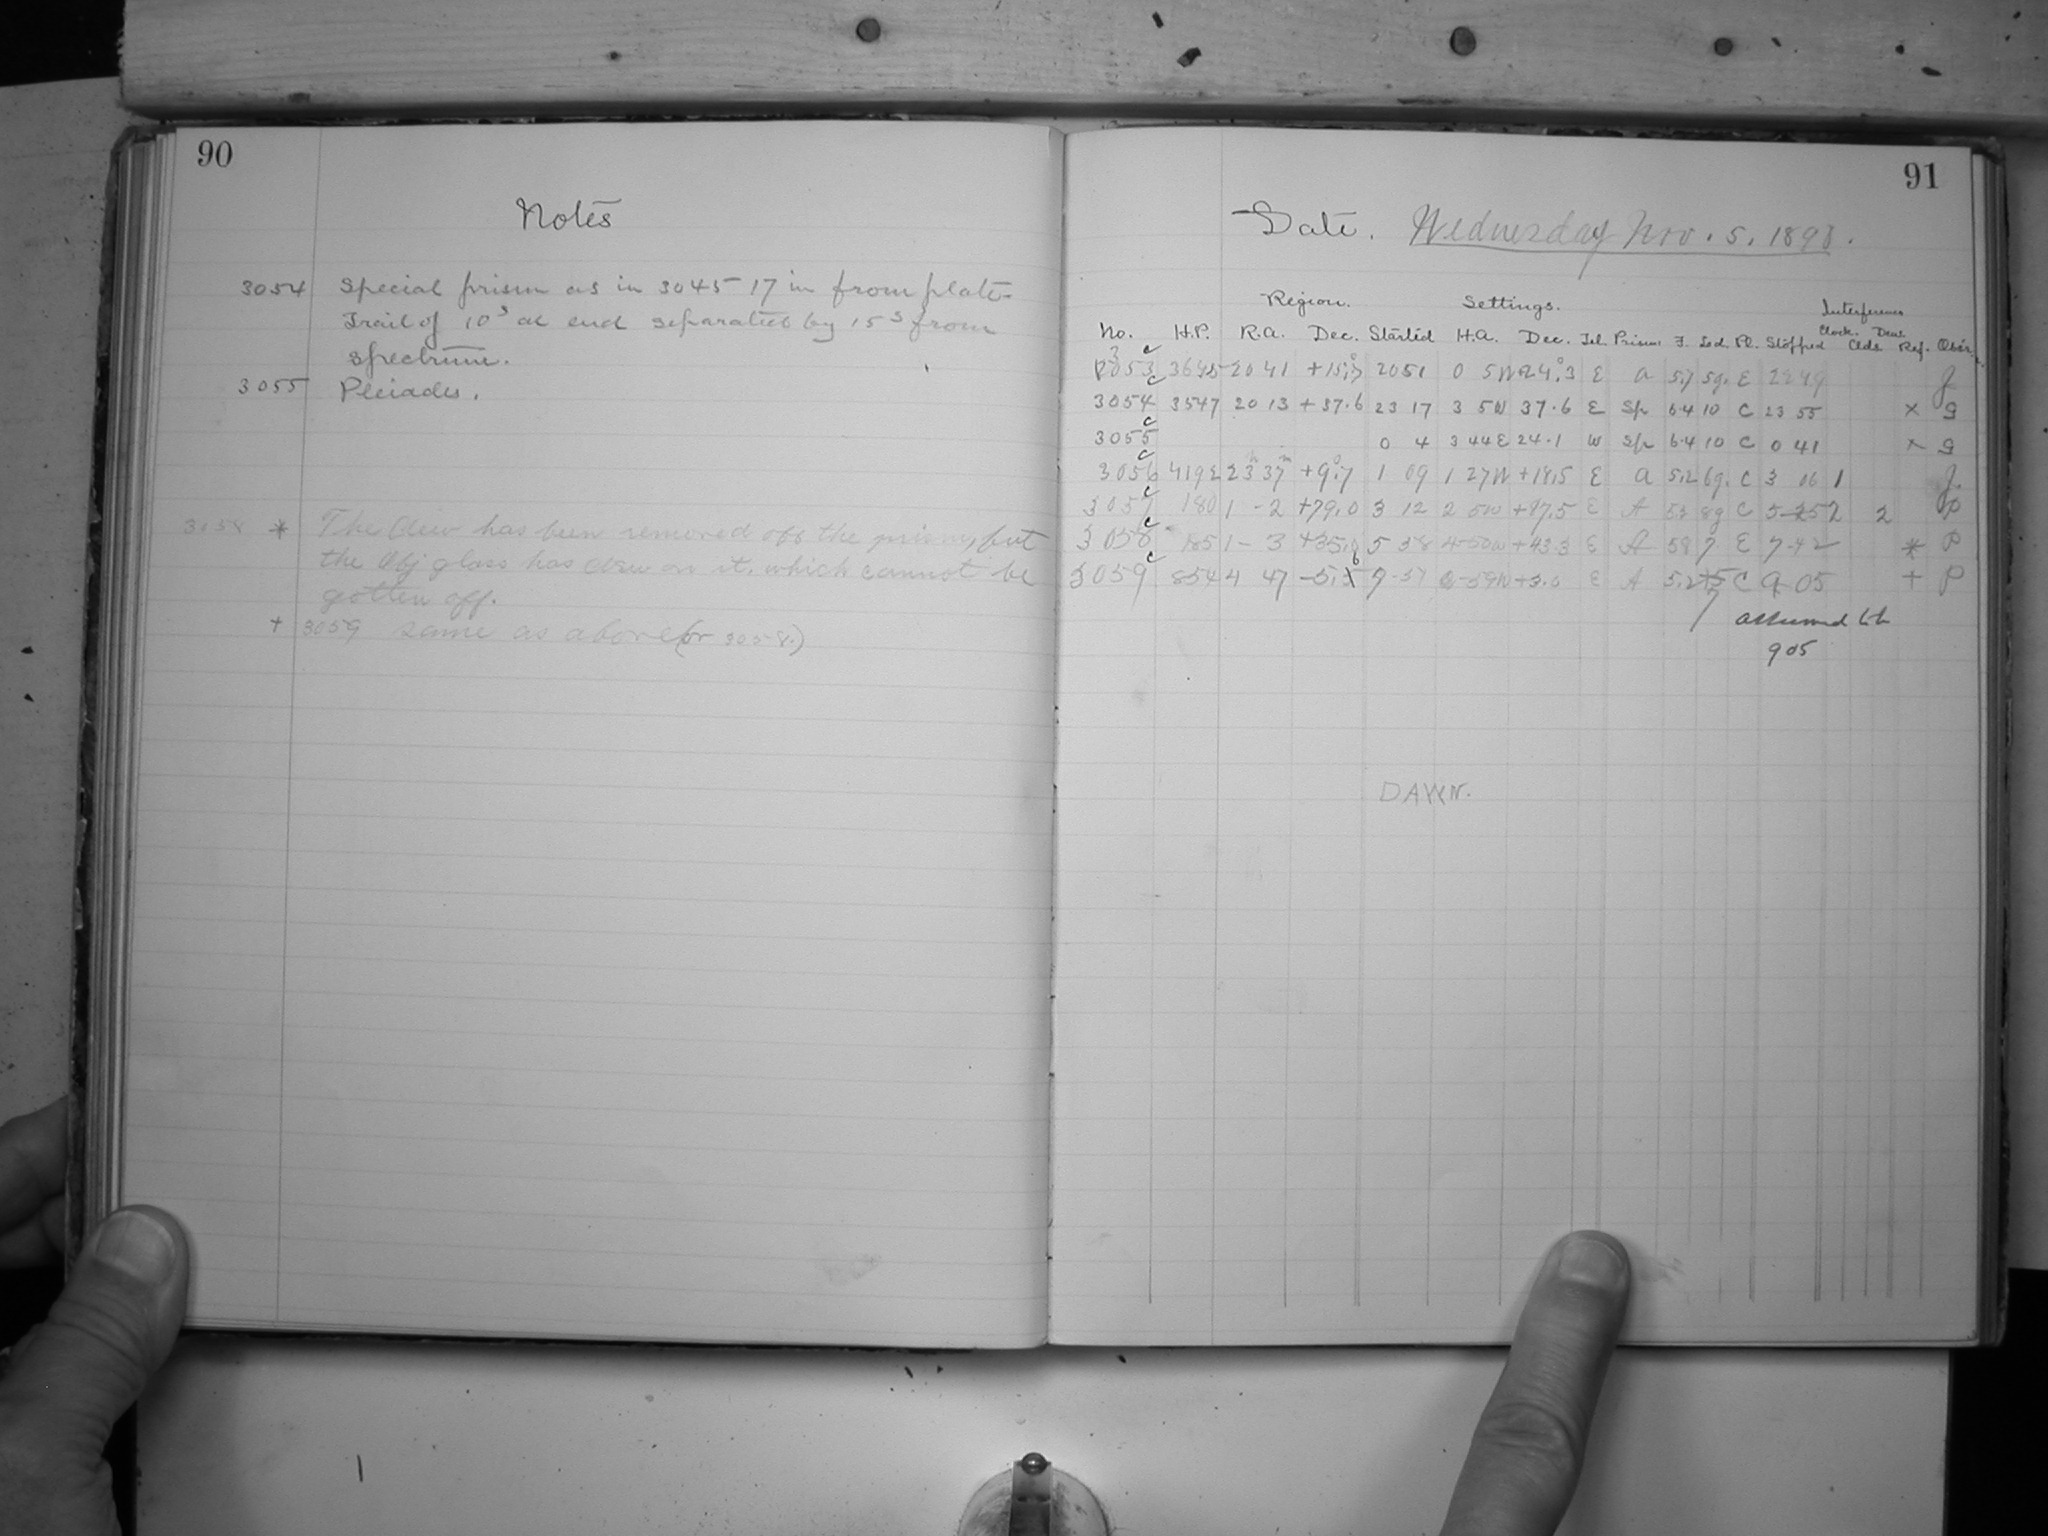 90
Notes
3054 Special prism as in 3045 17 in from plate
Trail of 10s at end separated by 15s from
spectrum.
3055 Pleiades.
3058 * The dew has been removed off the prism, but
the Obj glass has dew on it, which cannot be
gotten off.
+ 3059 same as above (or 3058.)
91
Date. Wednesday Nov. 5. 1890.
Region. Settings. Interference
No. H.P. R.A. Dec. Started H.A. Dec. Tel. Prism F. Sed. Pl. Stopped Clock. Clds. Dew Ref. Obsr.
3053 c 3645 20 41 20 51 0 5W E A 5.7 5g. E 22 49 J
3054 c 3547 20 13 +37.6 23 17 3 5W 37.6 E Sp 6.4 10 C 23 55 x G
3055 c 0 4 3 44E 24.1 W Sp 6.4 10 C 0 41 x G
3056 c 4192 23h 37m +9.7 1 09 1 27W +18.5 E A 5.2 6g. C 3 06 1 J.
3057 c 180 1 - 2 +79.0 3 12 2 5W +87.5 E A 8g C 2 P
3058 c 185 1 - 3 5 38 4-50W +43.3 E A 58 7 E 7-42 * P
3059 c 854 4 47 E A C 9-05 + P
7 assumed
9 05
DAWN.